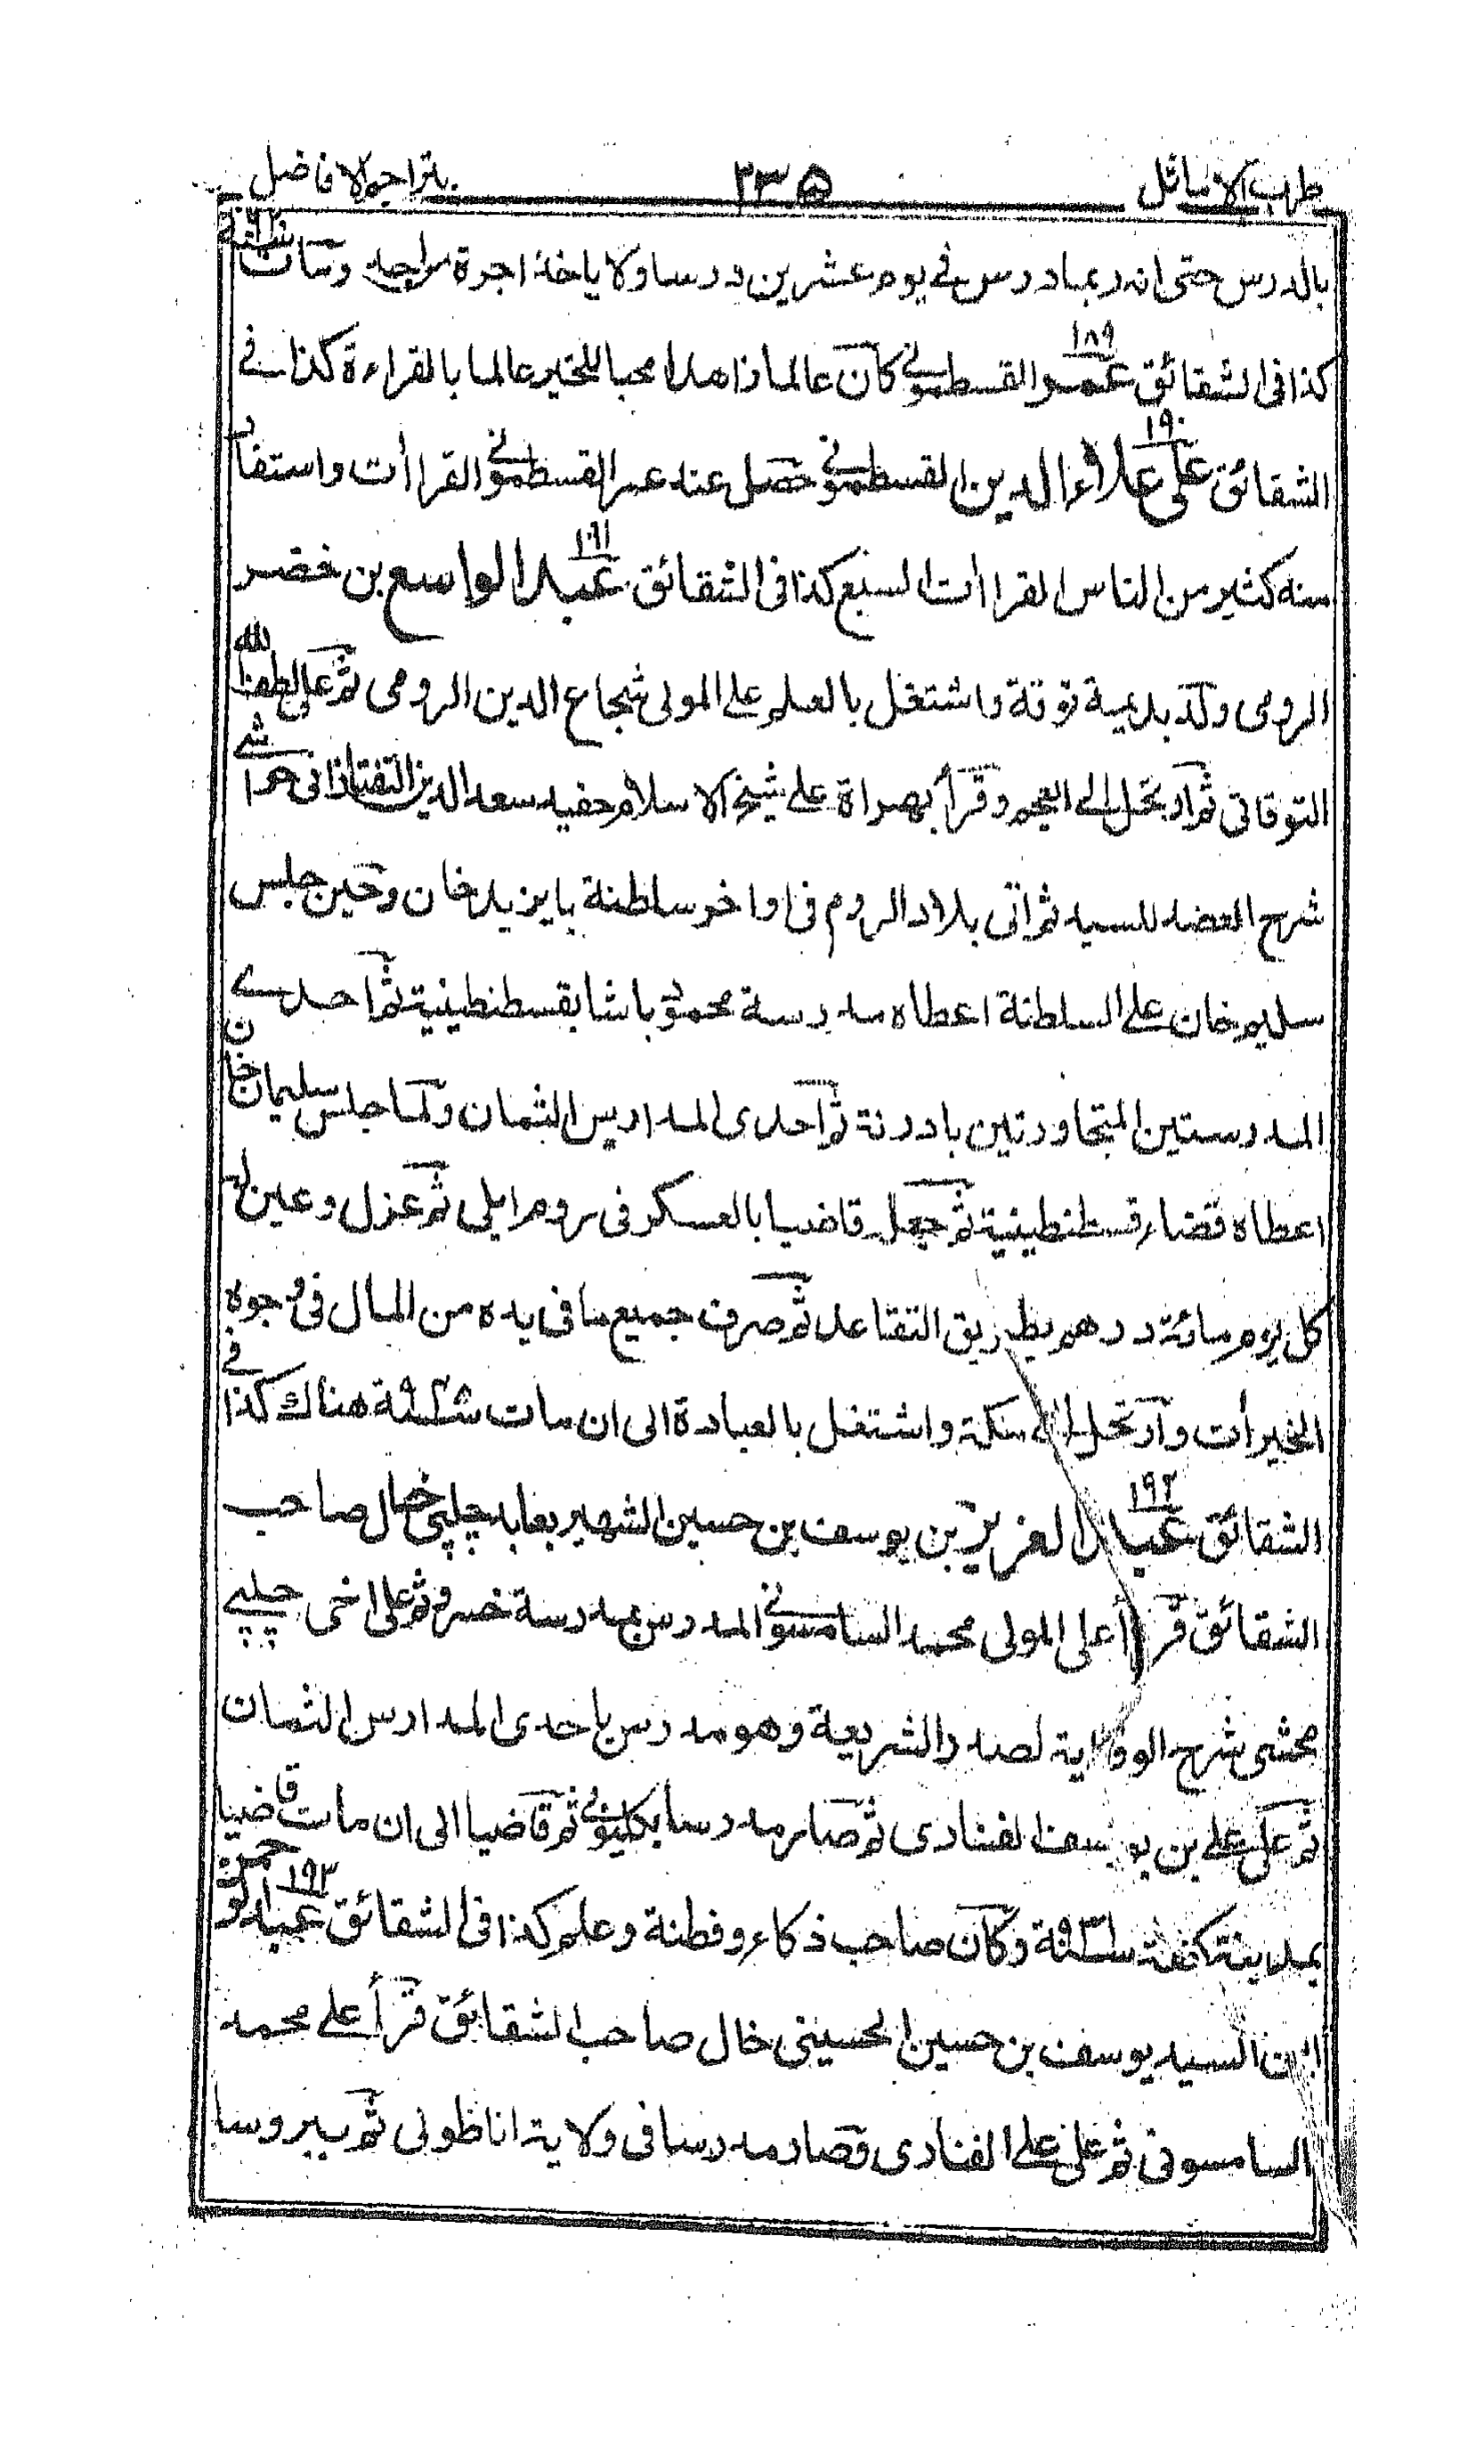 طرب الاماثل ٢٣٥ بتراجم الافاضل
بالدرس حتى انه ربما درس في يوم عشرين درسا ولا ياخذ اجرة من احد ومات سنة
كذا فى الشقائق ١٨٩ عمر القسطموني كان عالما زاهدا محبا للخير عالما بالقراءة كذا في
الشقائق ١٩٠ علي علاء الدين القسطموني حصل عند عمر القسطموني القراأت واستفاد
منه كثير من الناس القراأت السبع كذا فى الشقائق ١٩١ عبد الواسع بن خضر
الرومى ولد ببلدة ديمة توقة واشتغل بالعلم على المولى شجاع الدين الرومى ثم على لطف الله
التوقاتى ثم ارتحل الى العجم وقرأ بهراة على شيخ الاسلام حفيد سعد الدين التفتازانى حواشي
شرح العضد للسيد ثم اتى بلاد الروم فى اواخر سلطنة بايزيد خان وحين جلس
سليم خان على السلطنة اعطاه مدرسة محمود باشا بقسطنطينية ثم احدى
المدرستين المتجاورتين بادرنة ثم احدى المدارس الثمان ولما جلس سليمان خان
اعطاه قضاء قسطنطينية ثم جعل قاضيا بالعسكر فى روم ايلى ثم عزل وعين له
كل يوم مائة درهم بطريق التقاعد ثم صرف جميع ما فى يده من المال فى وجوه
الخيرأت وارتحل الى مكة واشتغل بالعبادة الى ان مات سنة هناك كذا في
الشقائق ١٩٢ عبد العزيز بن يوسف بن حسين الشهير بعابد چلپى خال صاحب
الشقائق قرأ على المولى محمد السامسوني المدرس بمدرسة خسرو ثم على اخى چلپي
محشى شرح الوقاية لصدر الشريعة وهو مدرس باحدى المدارس الثمان
ثم على علي بن يوسف الفنادى ثم صار مدرسا بكليبولي ثم قاضيا الى ان مات قاضيا
بمدينة كفة سنة ٩٣١ وكان صاحب ذكاء وفطنة وعلم كذا فى الشقائق ١٩٣ عبد الرحمن
ابن السيد يوسف بن حسين الحسينى خال صاحب الشقائق قرأ على محمد
السامسونى ثم على علي الفنادى وصار مدرسا فى ولاية اناطولى ثم ببروسا